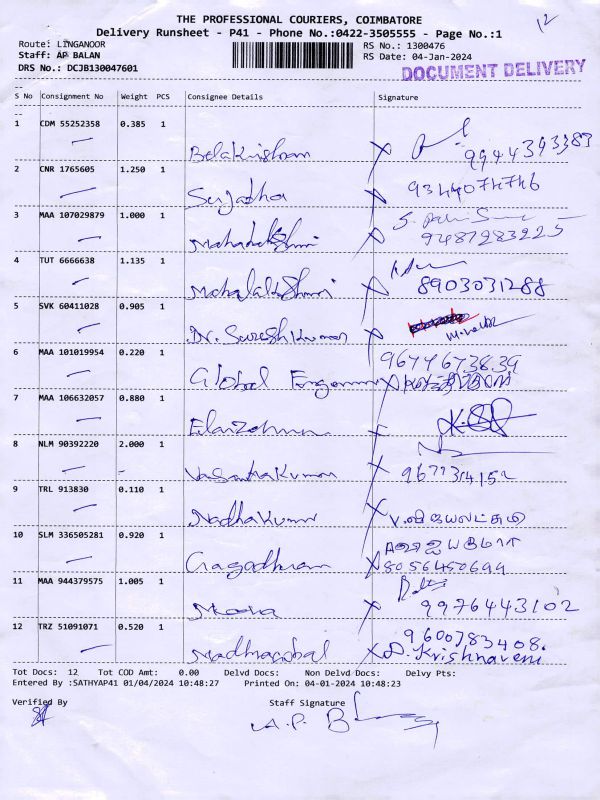 12
THE PROFESSIONAL COURIERS, COIMBATORE
Delivery Runsheet - P41 - Phone No.:0422-3505555 - Page No.:1
Route: LINGANOOR
RS No.: 1300476
Staff: AP BALAN
RS Date: 04-Jan-2024
DRS No.: DCJB130047601
DOCUMENT DELIVERY
S No Consignment No Weight PCS Consignee Details Signature
1 CDM 55252358 0.385 1
Balakrishnan 9944393383
2 CNR 1765605 1.250 1
Sujatha 9344074746
3 MAA 107029879 1.000 1
Mahalakshmi 9487283225
4 TUT 6666638 1.135 1
Mahalakshmi 8903031288
5 SVK 60411028 0.905 1
Dr. Sureshkumar
6 MAA 101019954 0.220 1 9674673839
Global
7 MAA 106632057 0.880 1
8 NLM 90392220 2.000 1
Vasanthakumar
9 TRL 913830 0.110 1
Nadhakumar V. விஜயலட்சுமி
10 SLM 336505281 0.920 1
8056450699
11 MAA 944379575 1.005 1
9976443102
12 TRZ 51091071 0.520 1 9600783408.
D. Krishnaveni
Tot Docs: 12 Tot COD Amt: 0.00 Delvd Docs: Non Delvd Docs: Delvy Pts:
Entered By :SATHYAP41 01/04/2024 10:48:27 Printed On: 04-01-2024 10:48:23
Verified By Staff Signature
A.P. B